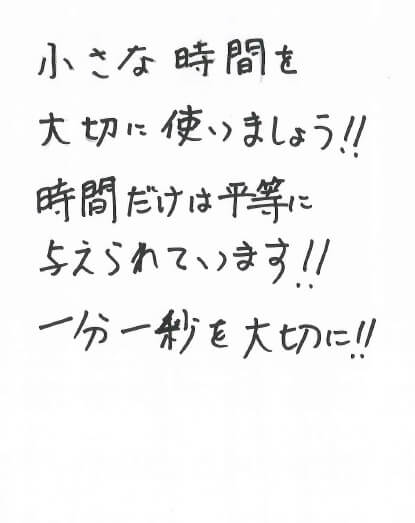 小さな時間を
大切に使いましょう!!
時間だけは平等に
与えられています!!
一分一秒を大切に!!